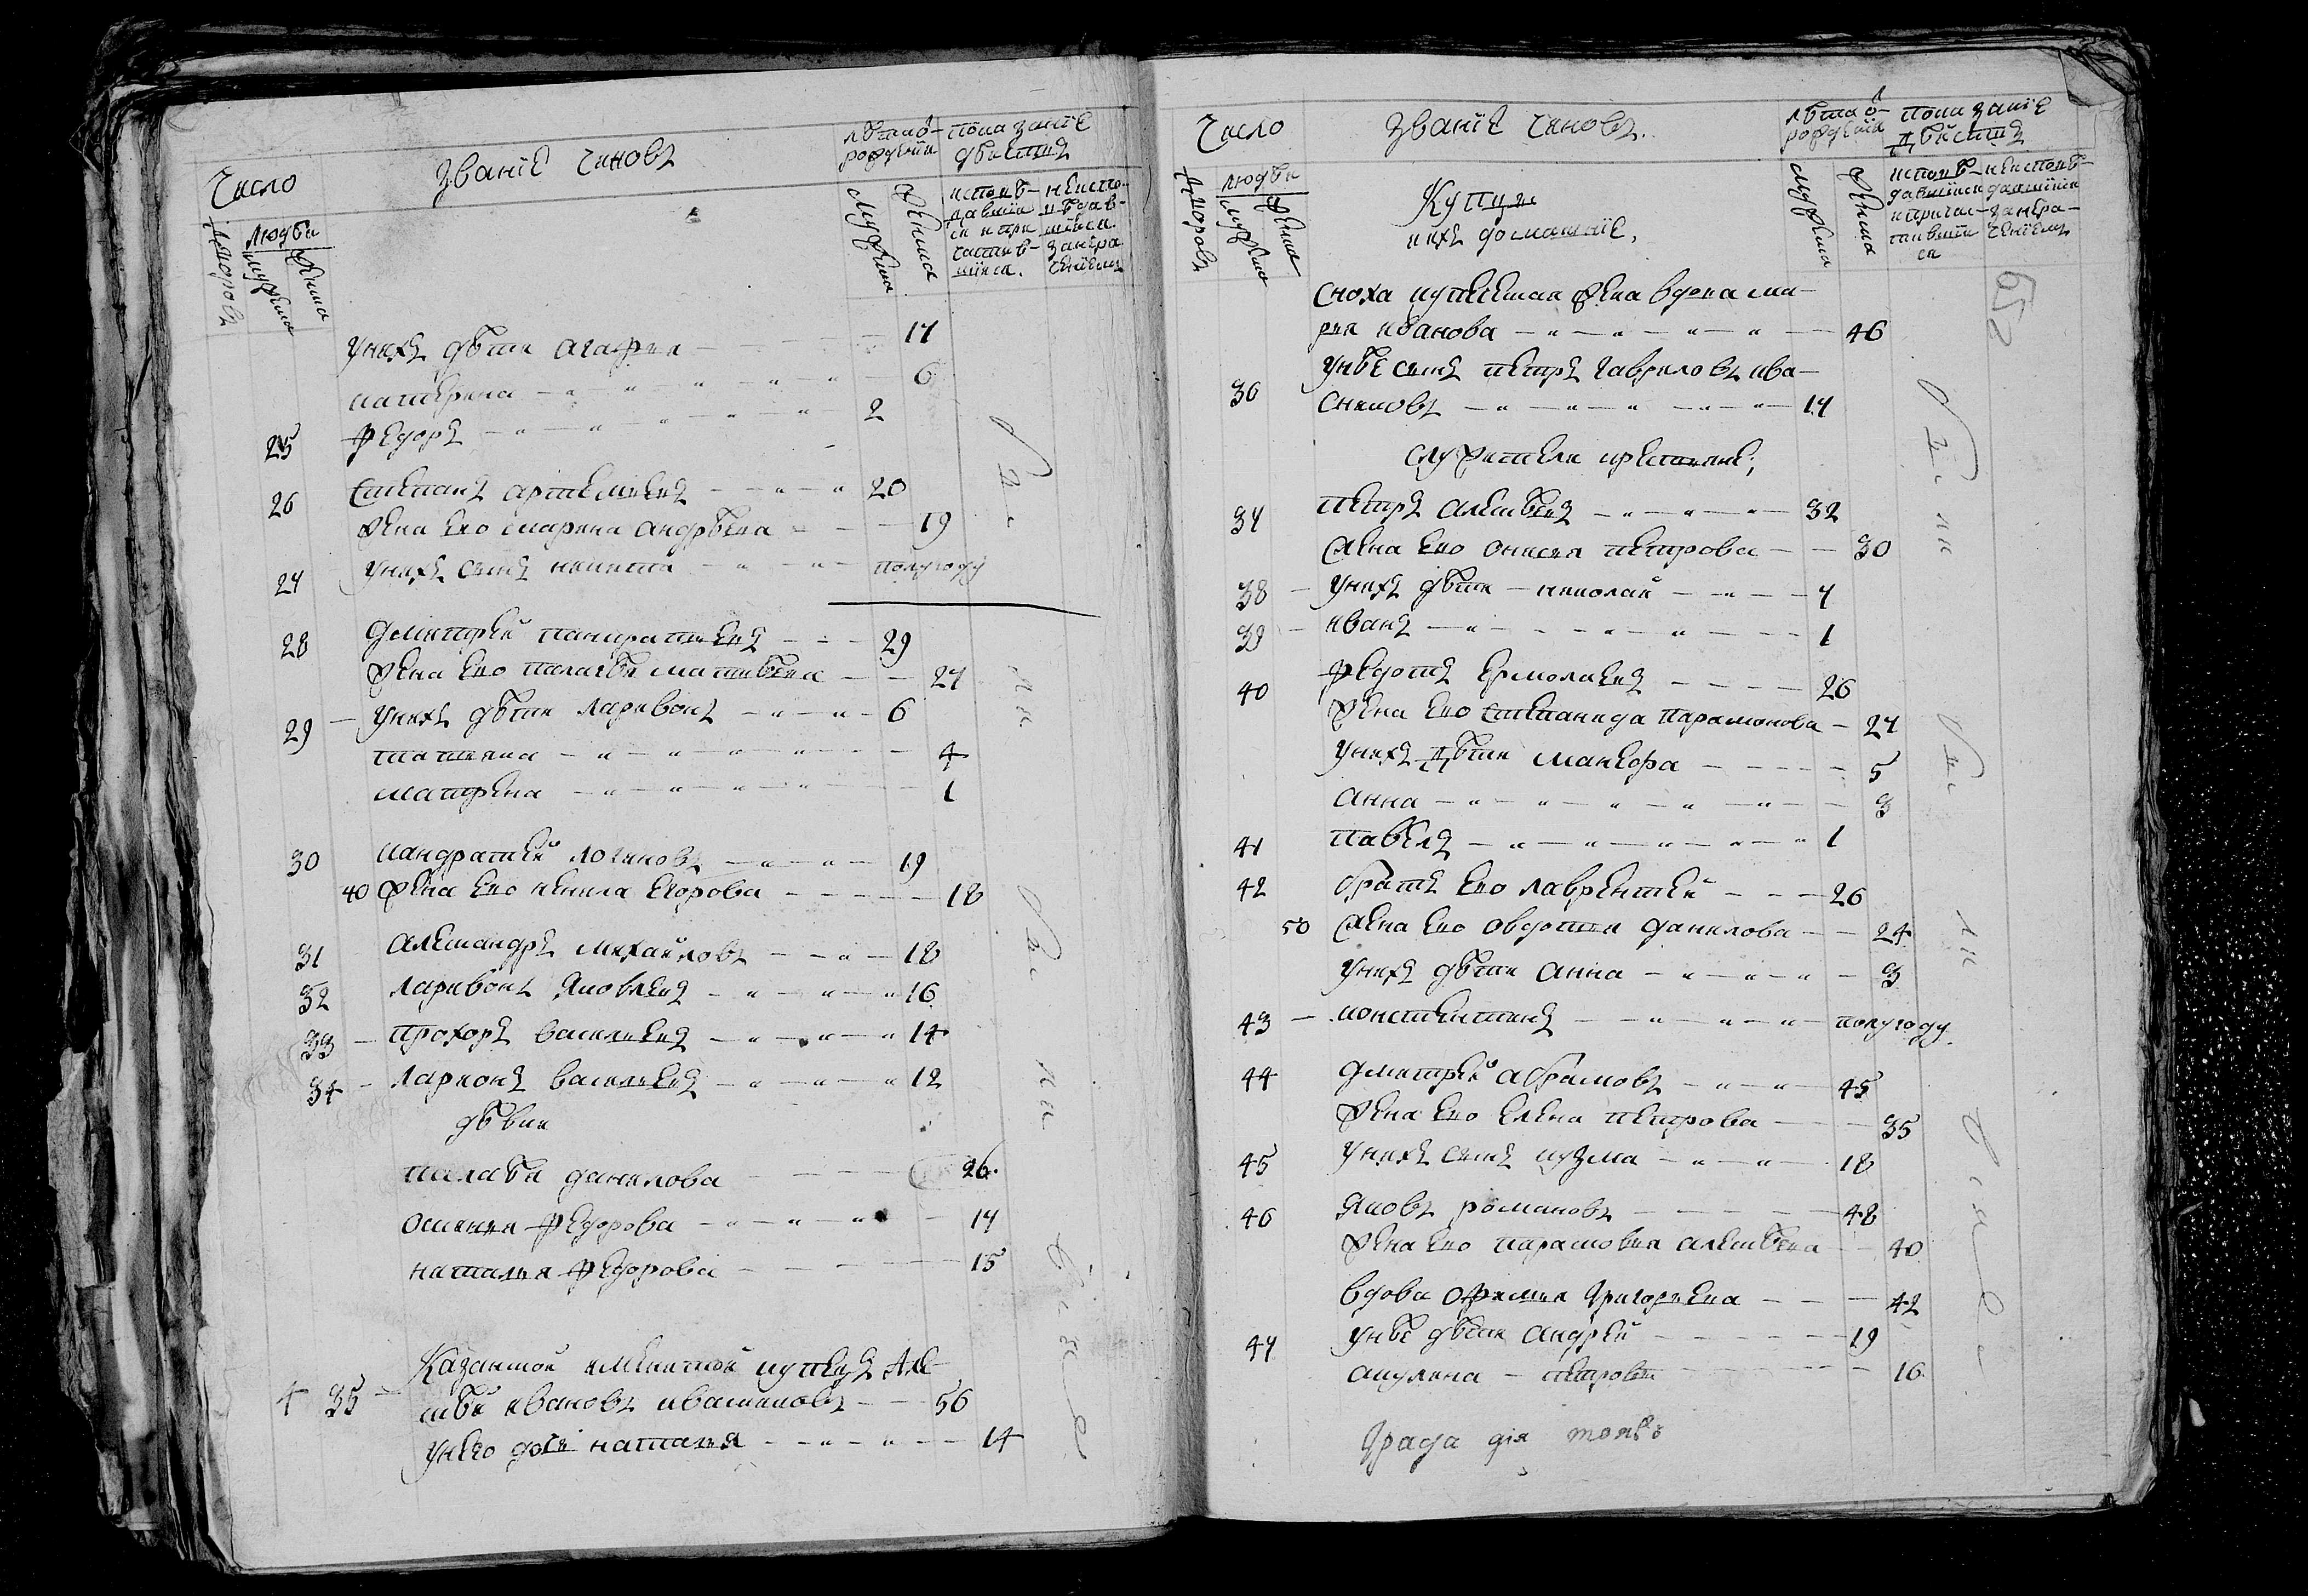 Число
Званїе чиновъ
лѣта ѿ рожденїя
показанїе дѣйства
дворовъ
людѣй
мужеска
женска
мужеска
женска
исповѣдавшїися и причастившїися.
неисповѣдавшїися за нерачениемъ
у нихъ дѣти агафия 17
катерина 6
25 Федоръ 2
26 Степанъ артемиевъ 20
жена ево марина андрѣева 19
27 у нихъ сынъ никита полугоду
28 дмитрей панкратиевъ 29
жена ево палагѣя матвѣева 27
29 у нихъ дѣти ларивонъ 6
татиана 4
матрена 1
30 кандратей логиновъ 19
40 жена ево ненила егорова 18
31 александръ михайловъ 18
32 ларивонъ яковлевъ 16
33 прохоръ василиевъ 14
34 ларионъ василиевъ 12
дѣвки
палагѣя данилова 26
оксиния Федорова 17
наталия Федорова 15
Казанской имянитой купецъ але-
4 35 ксѣй ивановъ квасниковъ 56
у него дочь наталия 14
Число
Званїе чиновъ
лѣта ѿ рожденїя
показанїе дѣйства
дворовъ
людѣй
мужеска
женска
Купцы
и ихъ домашнїе,
мужеска
женска
исповѣдавшїися и причастившїися
неисповѣдавшїися за нерачениемъ
652
сноха купецкая жена вдова ма-
рия иванова 46
у нѣе сынъ петръ гавриловъ ква-
36 сниковъ 17
служители крестияне;
37 петръ алексѣевъ 32
жена ево онисия петрова 30
38 у нихъ дѣти николай 7
39 иванъ 1
40 Федотъ ермолаевъ 26
жена ево степанида парамонова 27
у нихъ дѣти
5
анна 3
41 павелъ 1
42 братъ ево лаврентей 26
50 жена ево овдотия данилова 24
у нихъ дѣти анна 3
43 констентинъ полугоду
44 дмитрей абрамовъ 45
жена ево елена петрова 35
45 у нихъ сынъ кузма 18
46 яковъ романовъ 48
жена ево парасковия алексѣева 40
вдова офимия григориева 42
47 у нѣе дѣти андрей 19
акулина петровы 16